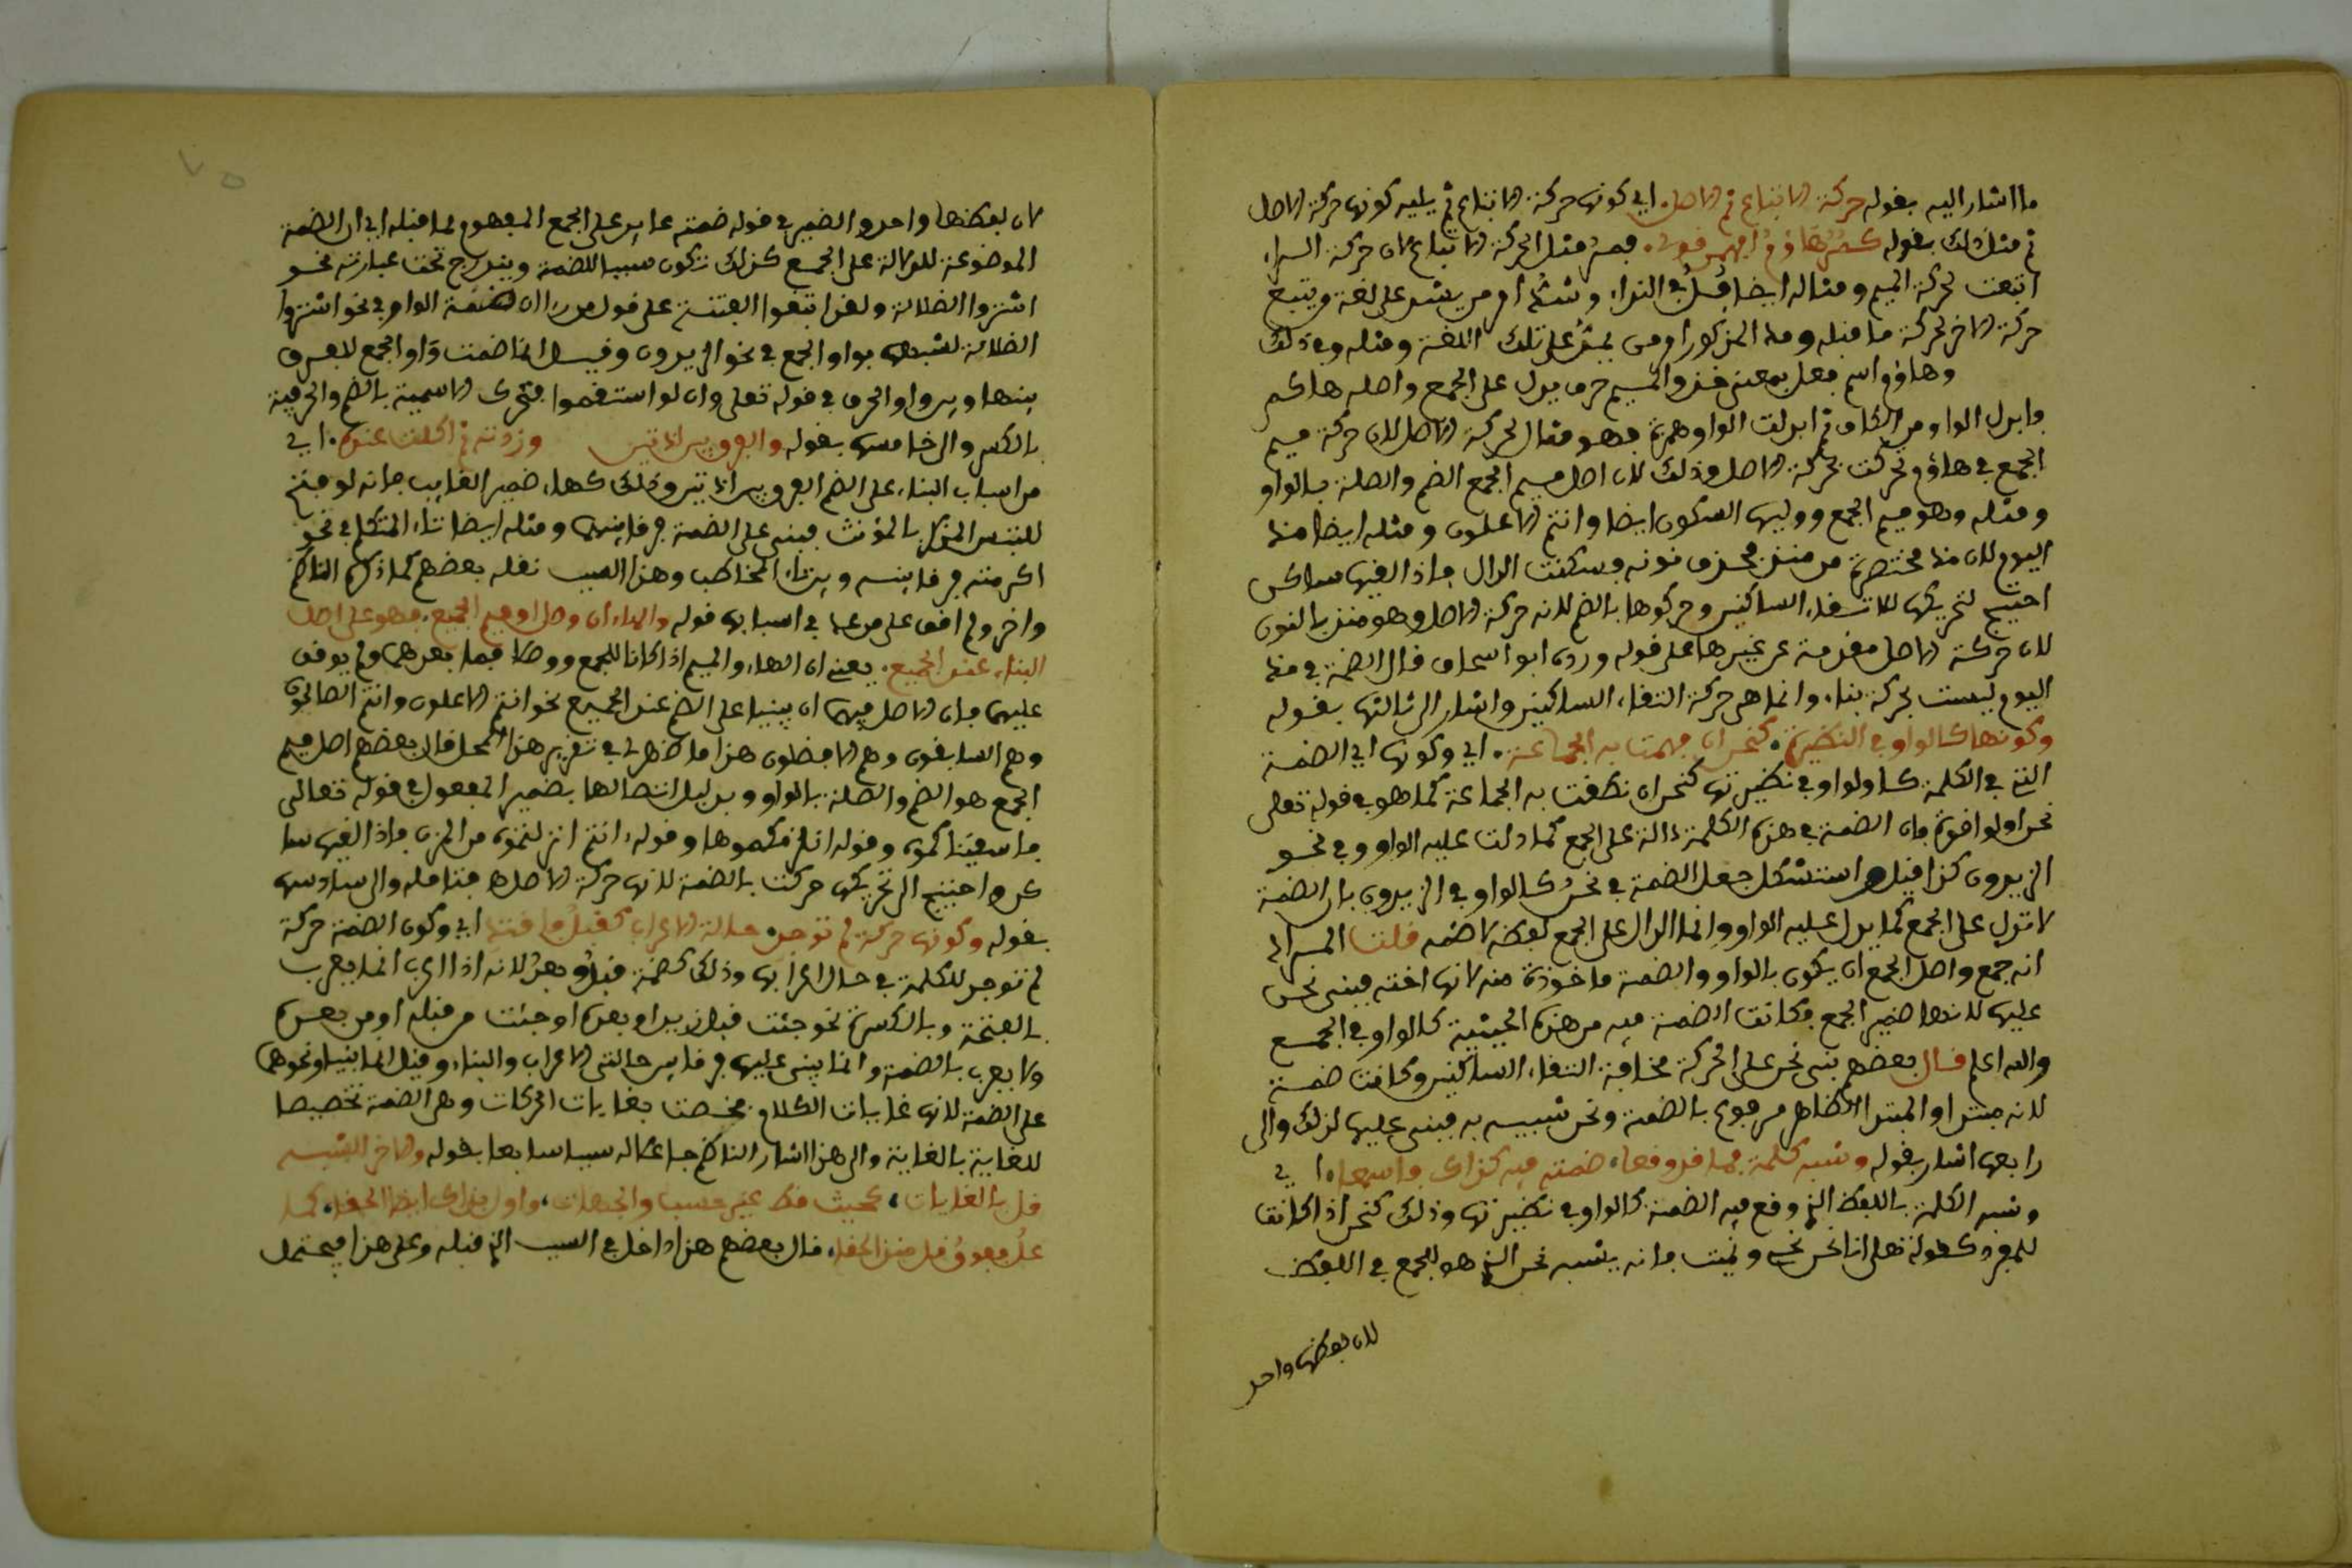 ما اشار اليه بقوله حركة الاتباع ثم الاصل اي كونها حركة الاتباع ثم يليه كونها حركة الاصل
ثم مثل ذلك بقوله كمُرُ هاؤمُ افهمن قولي. فمرُ مثل الحركة الاتباع لان حركة الراء
اتبعت لحركة الميم ومثاله ايضا قُلُ في النداء وشدُّ امر من يشد على لغة من يتبع
حركة الاخر لحركة ما قبله وهذا المذكور امر من يمر على تلك اللغة ومثله وفي ذلك
وهاؤم اسم فعل بمعنى خذ والميم حرف يدل على الجمع واصله هاكم
فابدل الواو من الكاف ثم ابدلت الواو همزة فهو مثال لحركة الاصل لان حركة ميم
الجمع في هاؤم تحركت بحركة الاصل وذلك لان اصل ميم الجمع الضم والصلة بالواو
ومثله وهو ميم الجمع ووليها السكون ايضا وانتم الاعلون ومثله ايضا مذ
اليوم لان مذ مختصرة من منذ بحذف نونه وسكنت الدال فاذا لقيها ساكن
احتيج لتحريكها لالتقاء الساكنين وحركوها بالضم لانه حركة الاصل وهو منذ بالنون
لان حركة الاصل مقدمة عن غيرها على قوله ورده ابو اسحاق قال الضمة في مذ
اليوم ليست بحركة بناء وانما هي حركة التقاء الساكنين واشار الى ثالثها بقوله
وكونها كالواو في النظيرة. كنحن ان فهمت به الجماعة. اي وكونها اي الضمة
التي في الكلمة كالواو في نظيرتها كنحن ان نطقت به الجماعة كما هو في قوله تعلى
نحن اولوا قوة فان الضمة في هذه الكلمة دالة على الجمع كما دلت عليه الواو وفي نحو
الزيدون كذا قيل واستشكل جعل الضمة في نحنُ كالواو في الزيدون بان الضمة
لا تدل على الجمع كما يدل عليه الواو وانما الدال على الجمع لفظه لا ضمه قلت المراد
انه جمع واصل الجمع ان يكون بالواو والضمة ماخوذة منه لانها اخته فبني نحن
عليها لانها ضمير الجمع فكانت الضمة فيه من هذه الحيثية كالواو في الجمع
والله اعلم قال بعضهم بني نحن على الحركة مخافة التقاء الساكنين وكانت ضمة
لانه مبتدا والمبتدا الظاهر مرفوع بالضمة ونحن شبيه به فبني عليها لذلك والى
رابعها اشار بقوله وشبه كلمة بما قد وقعا، ضمته فيه كذاك فاسمعا، اي
وشبه الكلمة باللفظ الذي وقع فيه الضمة كالواو في نظيرتها وذلك كنحن اذا كانت
للمفرد كقوله تعلى انا نحن نحيي ونميت فانه يشبه نحن الذي هو للجمع في اللفظ
لان لفظها واحد
لان لفظها واحد والضمير في قوله ضمته عايد على الجمع المفهوم مما قبله اي ان الضمة
الموضوعة للدلالة على الجمع كذلك تكون سببا للضمة ويندرج تحت عبارته نحو
اشتروا الضلالة ولقد ابتغوا الفتنة على قول من را ان ضمة الواو في نحو اشتروا
الضلالة لشبهها بواو الجمع في نحو الزيدون وقيل انما ضمت واو الجمع للفرق
بينها وبين واو الحرف في قوله تعلى وان لو استقموا فتحرك الاسمية بالضم والحرفية
بالكسر والى خامسها بقوله والفرق بين اداتين وزدته ثم اكملت عنده. اي
من اسباب البناء على الضم الفرق بين اداتين وذلك كهاء ضمير الغايب فانه لو فتح
للتبس المذكر بالمؤنث فبني على الضمة فرقا بينهما ومثله ايضا تاء المتكلم في نحو
اكرمته فرقا بينه وبين تاء المخاطب وهذا السبب نقله بعضهم كما ذكره الناظم
واخر ولم اقف على من عده في اسبابها قوله والهاء ان وصل او ميم الجميع. فهو على اصل
البناء عند الجميع. يعني ان الهاء والميم اذا كانا للجمع ووصلا فيما بعدهما ولم يوقف
عليهما فان الاصل فيهما ان يبنيا على الضم عند الجميع نحو انتم الاعلون وانتم الصالحون
وهم السابقون وهم الافضلون هذا ما ظهر لي في تقرير هذا المحل قال بعضهم اصل ميم
الجمع هو الضم والصلة بالواو وبدليل اتصالها بضمير المفعول في قوله تعالى
فاسقيناكموه وقوله انلزمكموها وقوله، انتم انزلتموه من المزن فاذا لقيها سا
كن واحتيج الى تحريكها حركت بالضمة لانها حركة الاصل فتامله والى سادسها
بقوله وكونها حركة لم توجد. حالة الاعراب كقبلُ فاقتد اي وكون الضمة حركة
لم توجد للكلمة في حال اعرابها وذلك كضمة قبلُ وبعدُ لانه اذا اعرب انما يعرب
بالفتحة وبالكسرة نحو جئت قبل زيد او بعده او جئت من قبله او من بعده
ولا يعرب بالضمة وانما يبنى عليها فرقا بين حالتي الاعراب والبناء وقيل انما بنيا ونحوهما
على الضمة لانها غايات الكلام فخصت بغايات الحركات وهي الضمة تخصيصا
للغاية بالغاية والى هذا اشار الناظم جاعلا له سببا سابعا بقوله والاخر للشبه
قل بالغايات، كحيث قط غير حسب والجهات، واول كذاك ايضا انجلا، كما
علُ فعوقُ قل منذ انجلا، قال بعضهم هذا داخل في السبب الذي قبله وعلى هذا فيحتمل